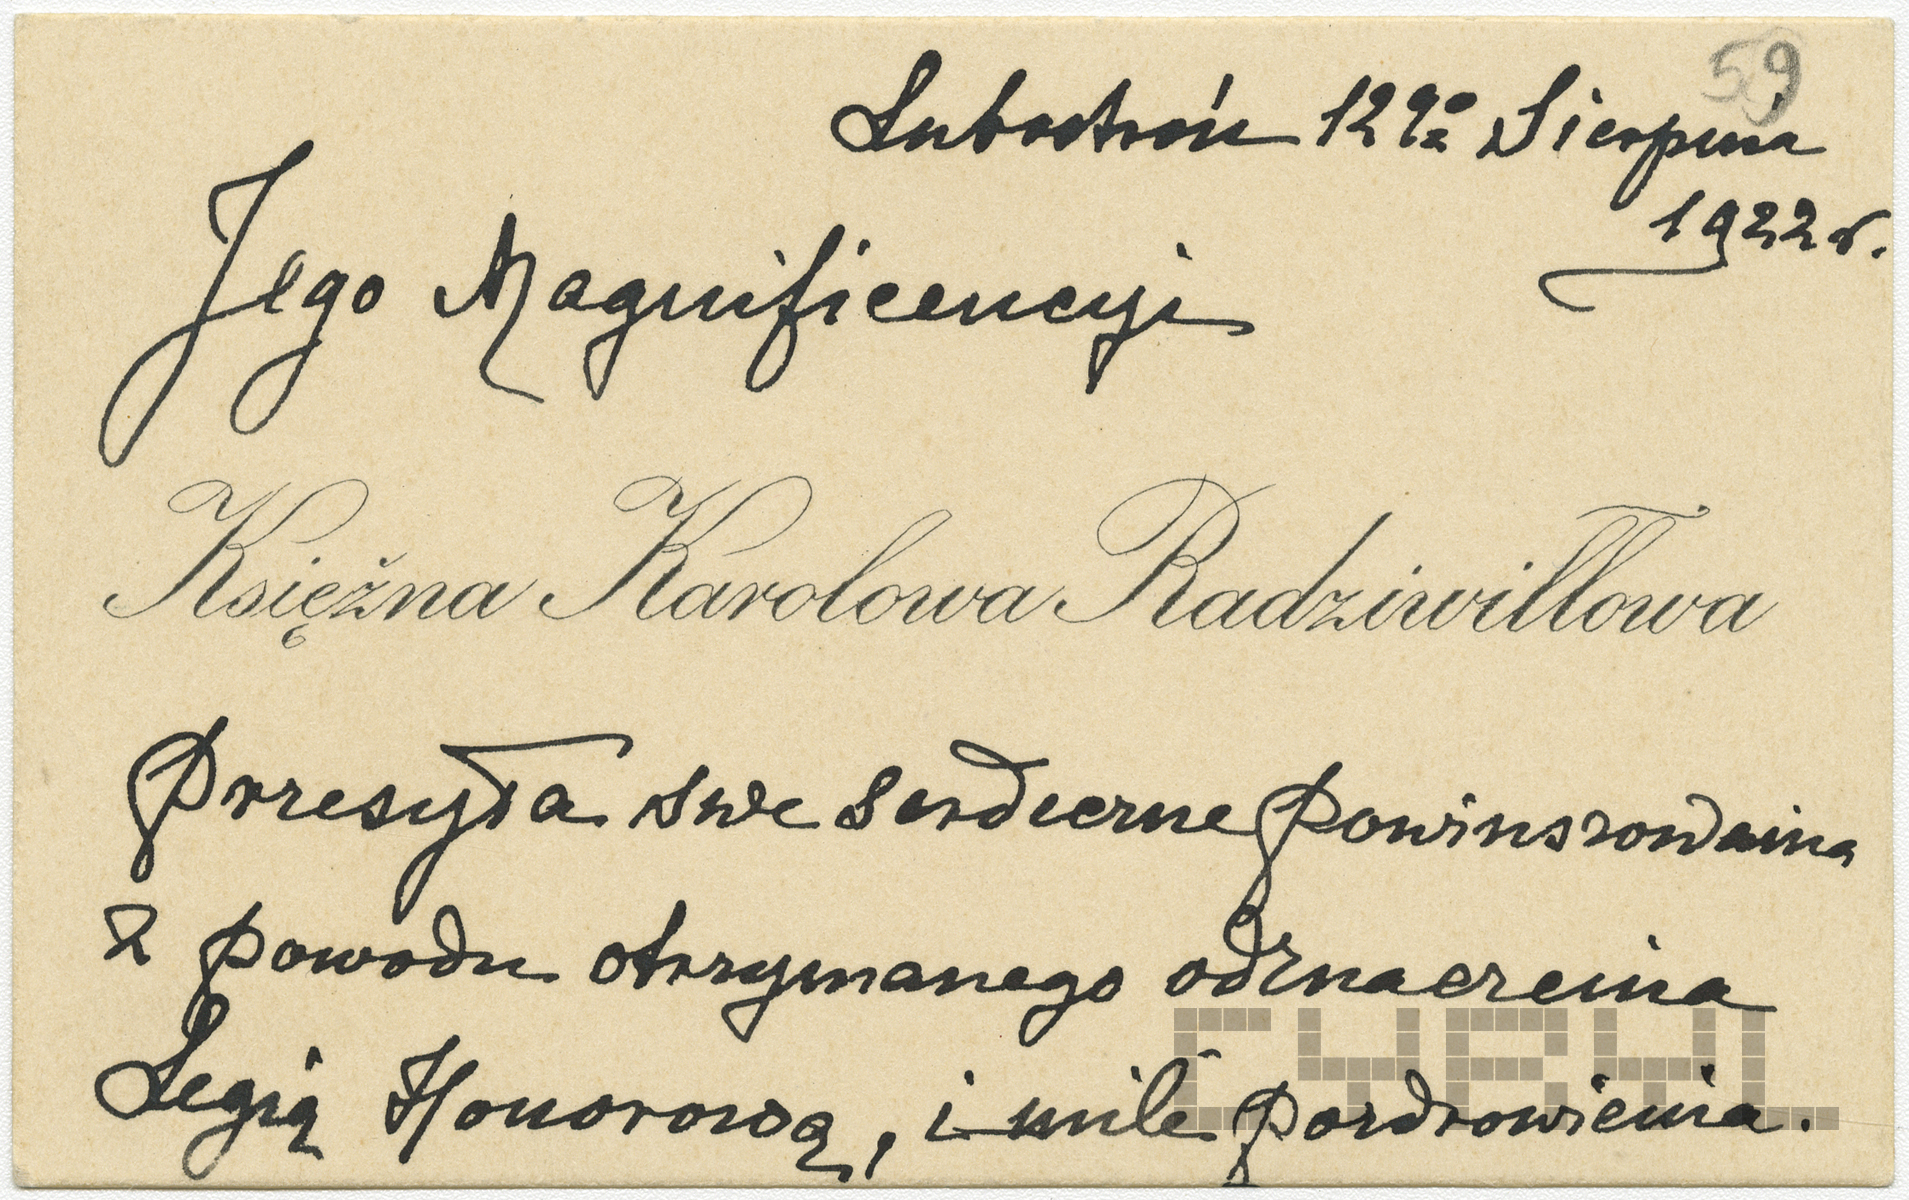 59
Lubostroń 12go Sierpnia
1922 r.
Jego Magnificencyi
Księżna Karolowa Radziwiłłowa
Przesyła swe serdeczne powinszowania
z powodu otrzymanego odznaczenia
Legią Honorową, i miłe pozdrowienia.
CYRYL